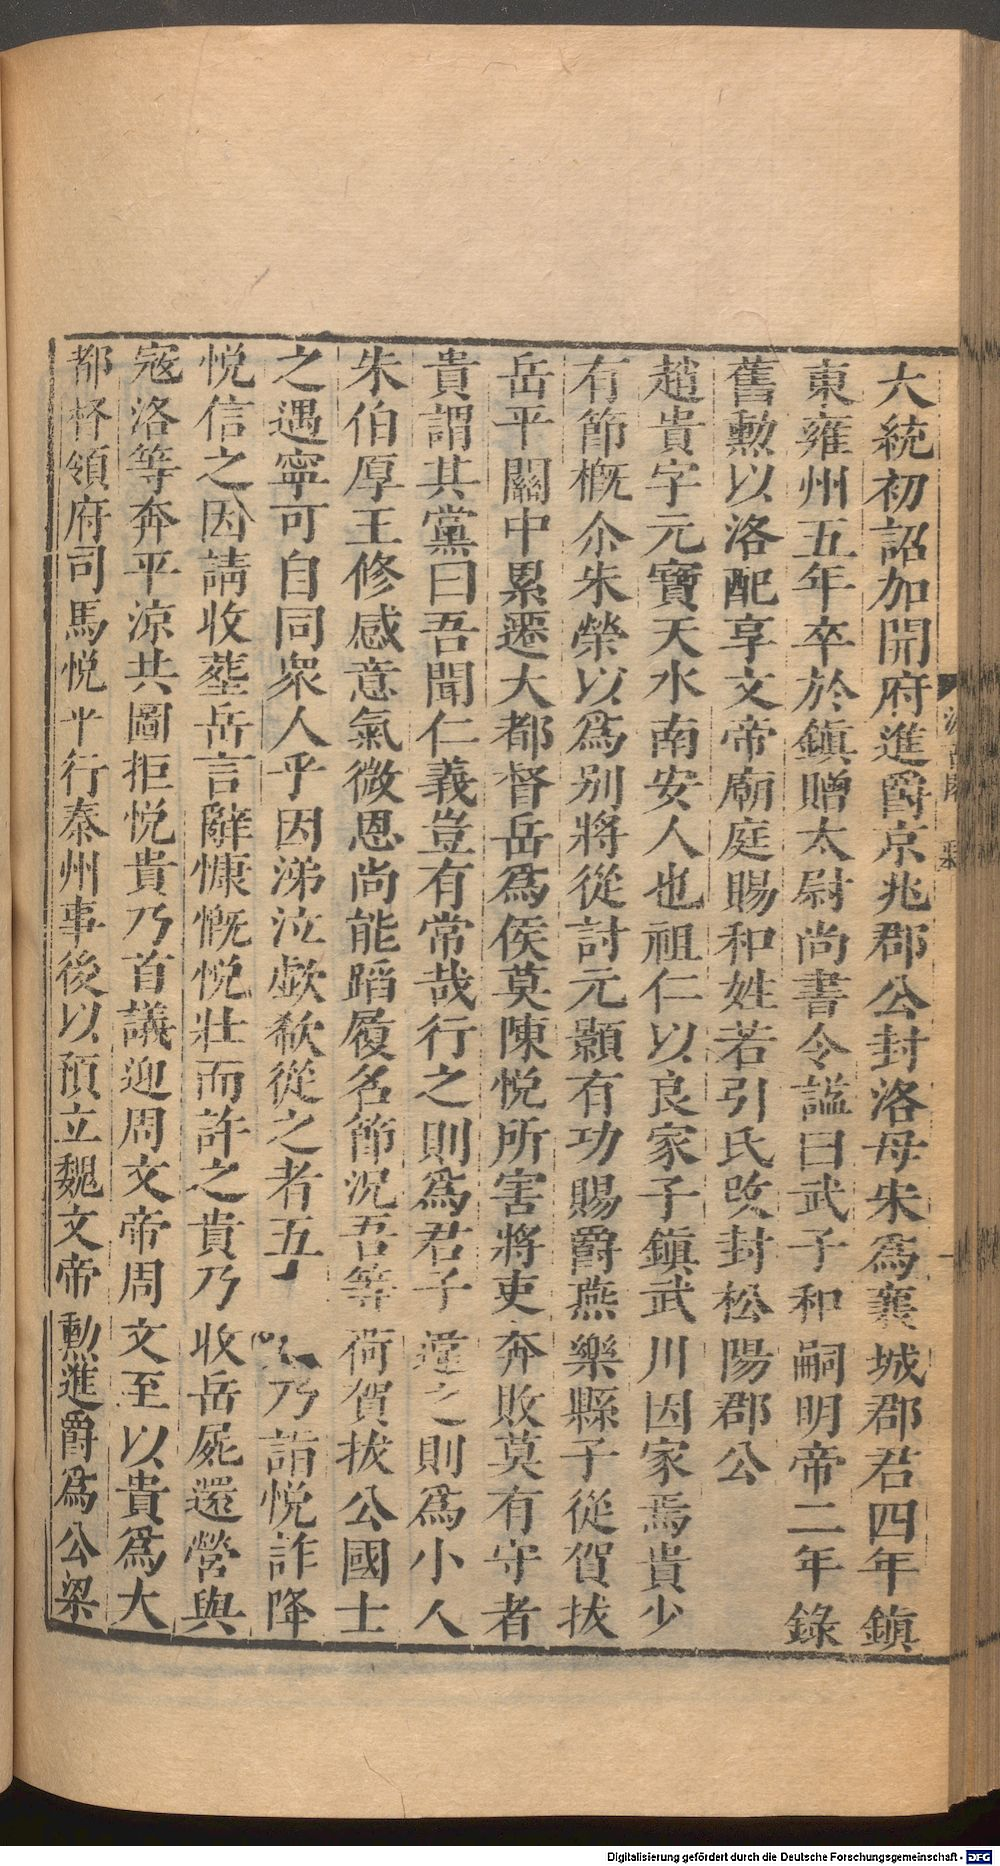 大統初詔加開府進爵京兆郡公封洛母宋爲襄城郡君四年鎮
東雍州五年卒於鎮贈太尉尚書令諡曰武子和嗣明帝二年錄
舊勲以洛配享文帝廟庭賜和姓若引氏改封松陽郡公
趙貴字元寶天水南安人也祖仁以良家子鎮武川因家焉貴少
有節概尒朱榮以爲别將從討元顥有功賜爵燕樂縣子從賀拔
岳平關中累遷大都督岳爲侯莫陳悦所害將吏奔敗莫有守者
貴謂其黨曰吾聞仁義豈有常哉行之則爲君子違之則爲小人
朱伯厚王修感意氣微恩尚能蹈履名節況吾等荷賀拔公國士
之遇寧可自同衆人乎因涕泣歔欷從之者五乃詣悦詐降
悦信之因請收葬岳言辭慷慨悦壯而許之貴乃收岳屍還營與
寇洛等奔平涼共圖拒悦貴乃首議迎周文帝周文至以貴爲大
都督領府司馬悦平行秦州事後以預立魏文帝勲進爵爲公梁
Digitalisierung gefördert durch die Deutsche Forschungsgemeinschaft - DFG